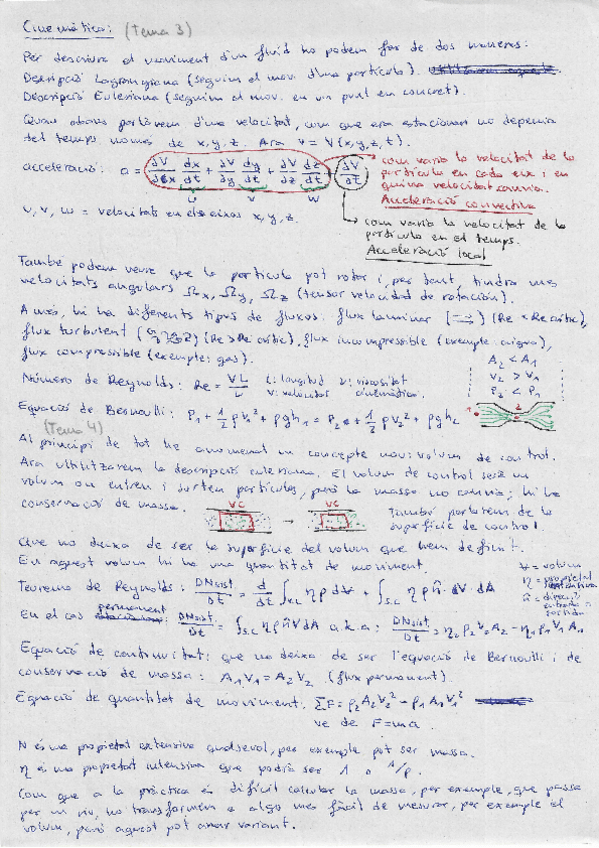 Cinemàtica: (Tema 3)
Per descriure el moviment d'un fluid ho podem fer de dos maneres:
Descripció Lagrangiana (seguim el mov. d'una partícula).
Descripció Euleriana (seguim el mov. en un punt en concret).
Quan abans parlàvem d'una velocitat, com que era estacionari no depenia
del temps només de x,y,z Ara v = V(x,y,z,t).
acceleració: a = ∂V/∂x dx/dt + ∂V/∂y dy/dt + ∂V/∂z dz/dt + ∂V/∂t
u v w
com varia la velocitat de la
partícula en cada eix i en
quina velocitat canvia.
Acceleració convectiva
u, v, w = velocitats en els eixos x, y, z.
com varia la velocitat de la
partícula en el temps.
Acceleració local
També podem veure que la partícula pot rotar i, per tant, tindrà unes
velocitats angulars Ωx, Ωy, Ωz (tensor velocidad de rotación).
A més, hi ha diferents tipus de fluxos. flux laminar (Re < Re crític),
flux turbulent (Re > Re crític), flux incompressible (exemple: aigua),
flux compressible (exemple: gas).
Número de Reynolds: Re = VL/ν L: longitud ν: viscositat
V: velocitat cinemàtica.
A2 < A1
V2 > V1
P2 < P1
Equació de Bernoulli: P1 + 1/2 ρV1² + ρgh1 = P2 + 1/2 ρV2² + ρgh2
(Tema 4)
Al principi de tot he anomenat un concepte nou: volum de control.
Ara utilitzarem la descripció euleriana. El volum de control serà un
volum on entren i surten partícules, però la massa no canvia; hi ha
conservació de massa. VC → VC També parlarem de la
superfície de control.
Que no deixa de ser la superfície del volum que hem definit.
En aquest volum hi ha una quantitat de moviment.
V = volum
η = propietat intensiva
n̂ = direcció entrada o sortida
Teorema de Reynolds: DNsist/Dt = d/dt ∫v.c ηρ dV + ∫s.c ηρ n̂·V dA
En el cas permanent: DNsist/Dt = ∫s.c ηρ n̂ V dA a.k.a: DNsist/Dt = η2 ρ2 V2 A2 - η1 ρ1 V1 A1
Equació de continuïtat: que no deixa de ser l'equació de Bernoulli i de
conservació de massa: A1V1 = A2V2 (flux permanent).
Equació de quantitat de moviment: ΣF = ρ2A2V2² - ρ1A1V1²
ve de F=m·a
N és una propietat extensiva qualsevol, per exemple pot ser massa.
η és una propietat intensiva que podria ser 1 o 1/ρ.
Com que a la pràctica és difícil calcular la massa, per exemple, que passa
per un riu, ho transformem a algo més fàcil de mesurar, per exemple el
volum, però aquest pot anar variant.